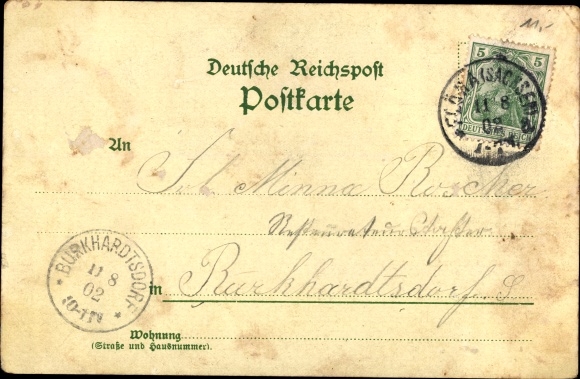 5 5
DEUTSCHES REICH
FLÖHA (SACHSEN)
11 8
02
Deutsche Reichspost
Postkarte
An
Minna Roscher
BURKHARDTSDORF
11 8
02
10-11V
in Burkhardtsdorf.
Wohnung
(Straße und Hausnummer).